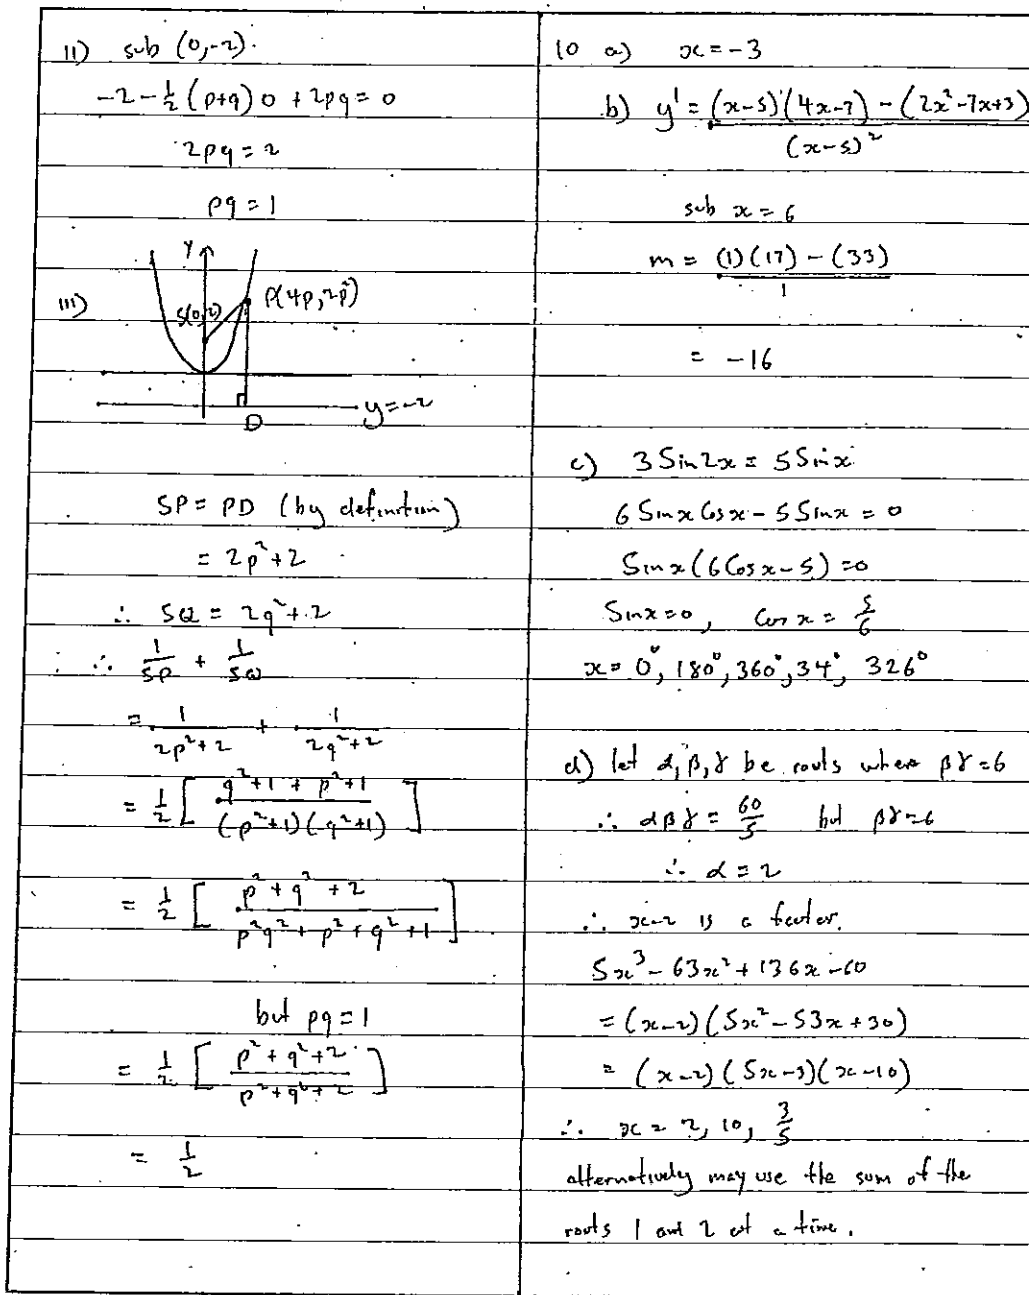 11) sub (0,-2).
-2-½(p+q)0+2pq=0
2pq=2
pq=1
111)
Y
S(0,2)
P(4p,2p²)
y=-2
D
SP=PD (by definition)
=2p²+2
∴ SQ=2q²+2
∴ 1/SP + 1/SQ
= 1/(2p²+2) + 1/(2q²+2)
= ½[(q²+1+p²+1)/((p²+1)(q²+1))]
= ½[(p²+q²+2)/(p²q²+p²+q²+1)]
but pq=1
= ½[(p²+q²+2)/(p²+q²+2)]
= ½
10 a) x=-3
b) y' = ((x-5)(4x-7)-(2x²-7x+3))/(x-5)²
sub x=6
m = ((1)(17)-(33))/1
= -16
c) 3Sin2x=5Sinx
6SinxCosx-5Sinx=0
Sinx(6Cosx-5)=0
Sinx=0, Cosx=5/6
x=0°,180°,360°,34°,326°
d) let α,β,γ be roots where βγ=6
∴ αβγ=60/5 but βγ=6
∴ α=2
∴ x-2 is a factor.
5x³-63x²+136x-60
=(x-2)(5x²-53x+30)
=(x-2)(5x-3)(x-10)
∴ x=2,10,3/5
alternatively may use the sum of the
roots 1 and 2 at a time.